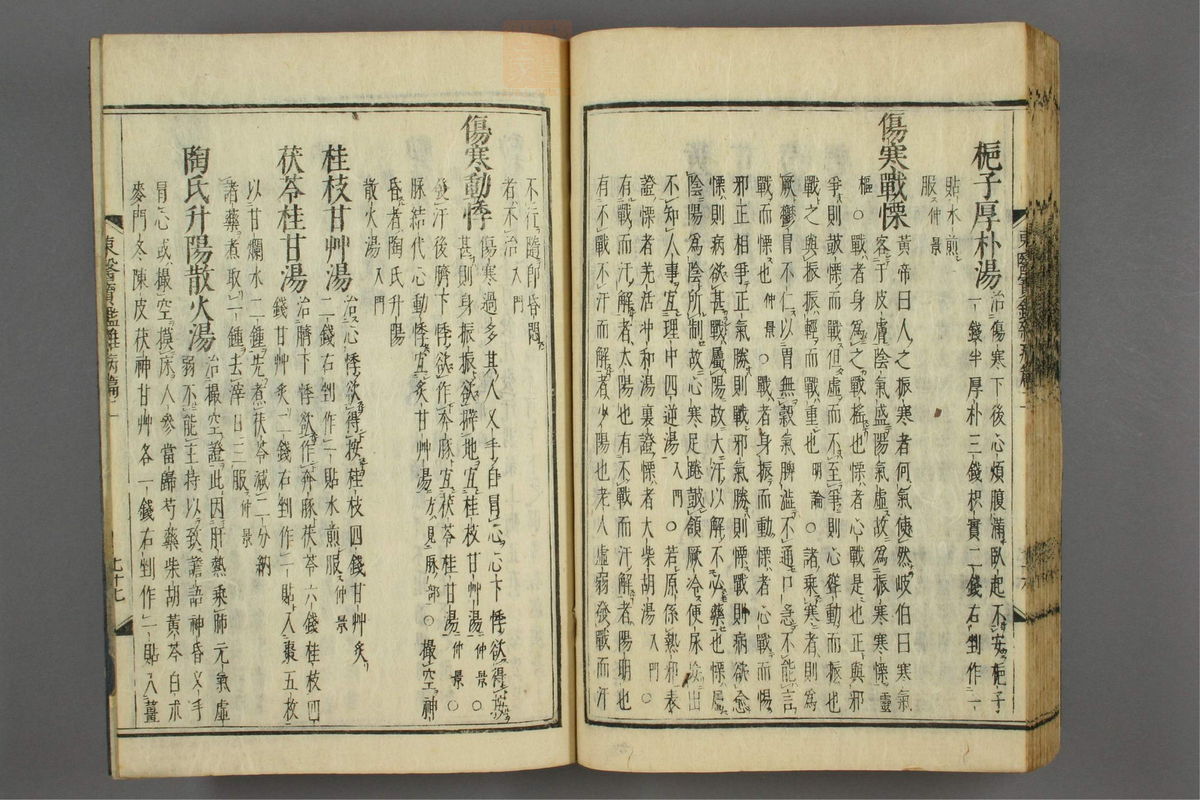 梔子厚朴湯治傷寒下後心煩腹滿臥起不安梔子
一錢半厚朴三錢枳實二錢右剉作一
貼水煎
服仲景
傷寒戰慄黃帝曰人之振寒者何氣使然岐伯曰寒氣
客于皮膚陰氣盛陽氣虛故為振寒寒慄靈
樞○戰者身為之戰搖也慄者心戰是也正與邪
爭則鼓慄而戰但虛而不至爭則心聳動而振也
戰之與振振輕而戰重也明論○諸乘寒者則為
厥鬱冒不仁以胃無穀氣脾澁不通口急不能言
戰而慄也仲景○戰者身振而動慄者心戰而惕
邪正相爭正氣勝則戰邪氣勝則慄戰則病欲愈
慄則病欲甚戰屬陽故大汗以解不必藥也慄屬
陰陽為陰所制故心寒足踡鼓頷厥冷便尿妄出
不知人事宜理中四逆湯入門○若原係熱邪表
證慄者羌活冲和湯裏證慄者大柴胡湯入門○
有戰而汗解者太陽也有不戰而汗解者陽明也
有不戰不汗而解者少陽也老人虛弱發戰而汗
不行隨卽昏悶
者不治入門
傷寒動悸傷寒過多其人叉手自冒心心下悸欲得按
甚則身振振欲擗地宜桂枝甘艸湯仲景○
發汗後臍下悸欲作奔豚宜茯苓桂甘湯仲景○
脉結代心動悸宜炙甘艸湯方見脉部○撮空神
昏者陶氏升陽
散火湯入門
桂枝甘艸湯治心悸欲得按桂枝四錢甘艸炙
二錢右剉作一貼水煎服仲景
茯苓桂甘湯治臍下悸欲作奔豚茯苓六錢桂枝四
錢甘艸炙二錢右剉作一貼入棗五枚
以甘爛水二鍾先煮茯苓減二分納
諸藥煮取一鍾去滓日三服仲景
陶氏升陽散火湯治撮空證此因肝熱乘肺元氣虛
弱不能主持以致譫語神昏叉手
冒心或撮空摸床人參當歸芍藥柴胡黃芩白朮
麥門冬陳皮茯神甘艸各一錢右剉作一貼入薑
東醫寶鑑雜病篇二
七十七